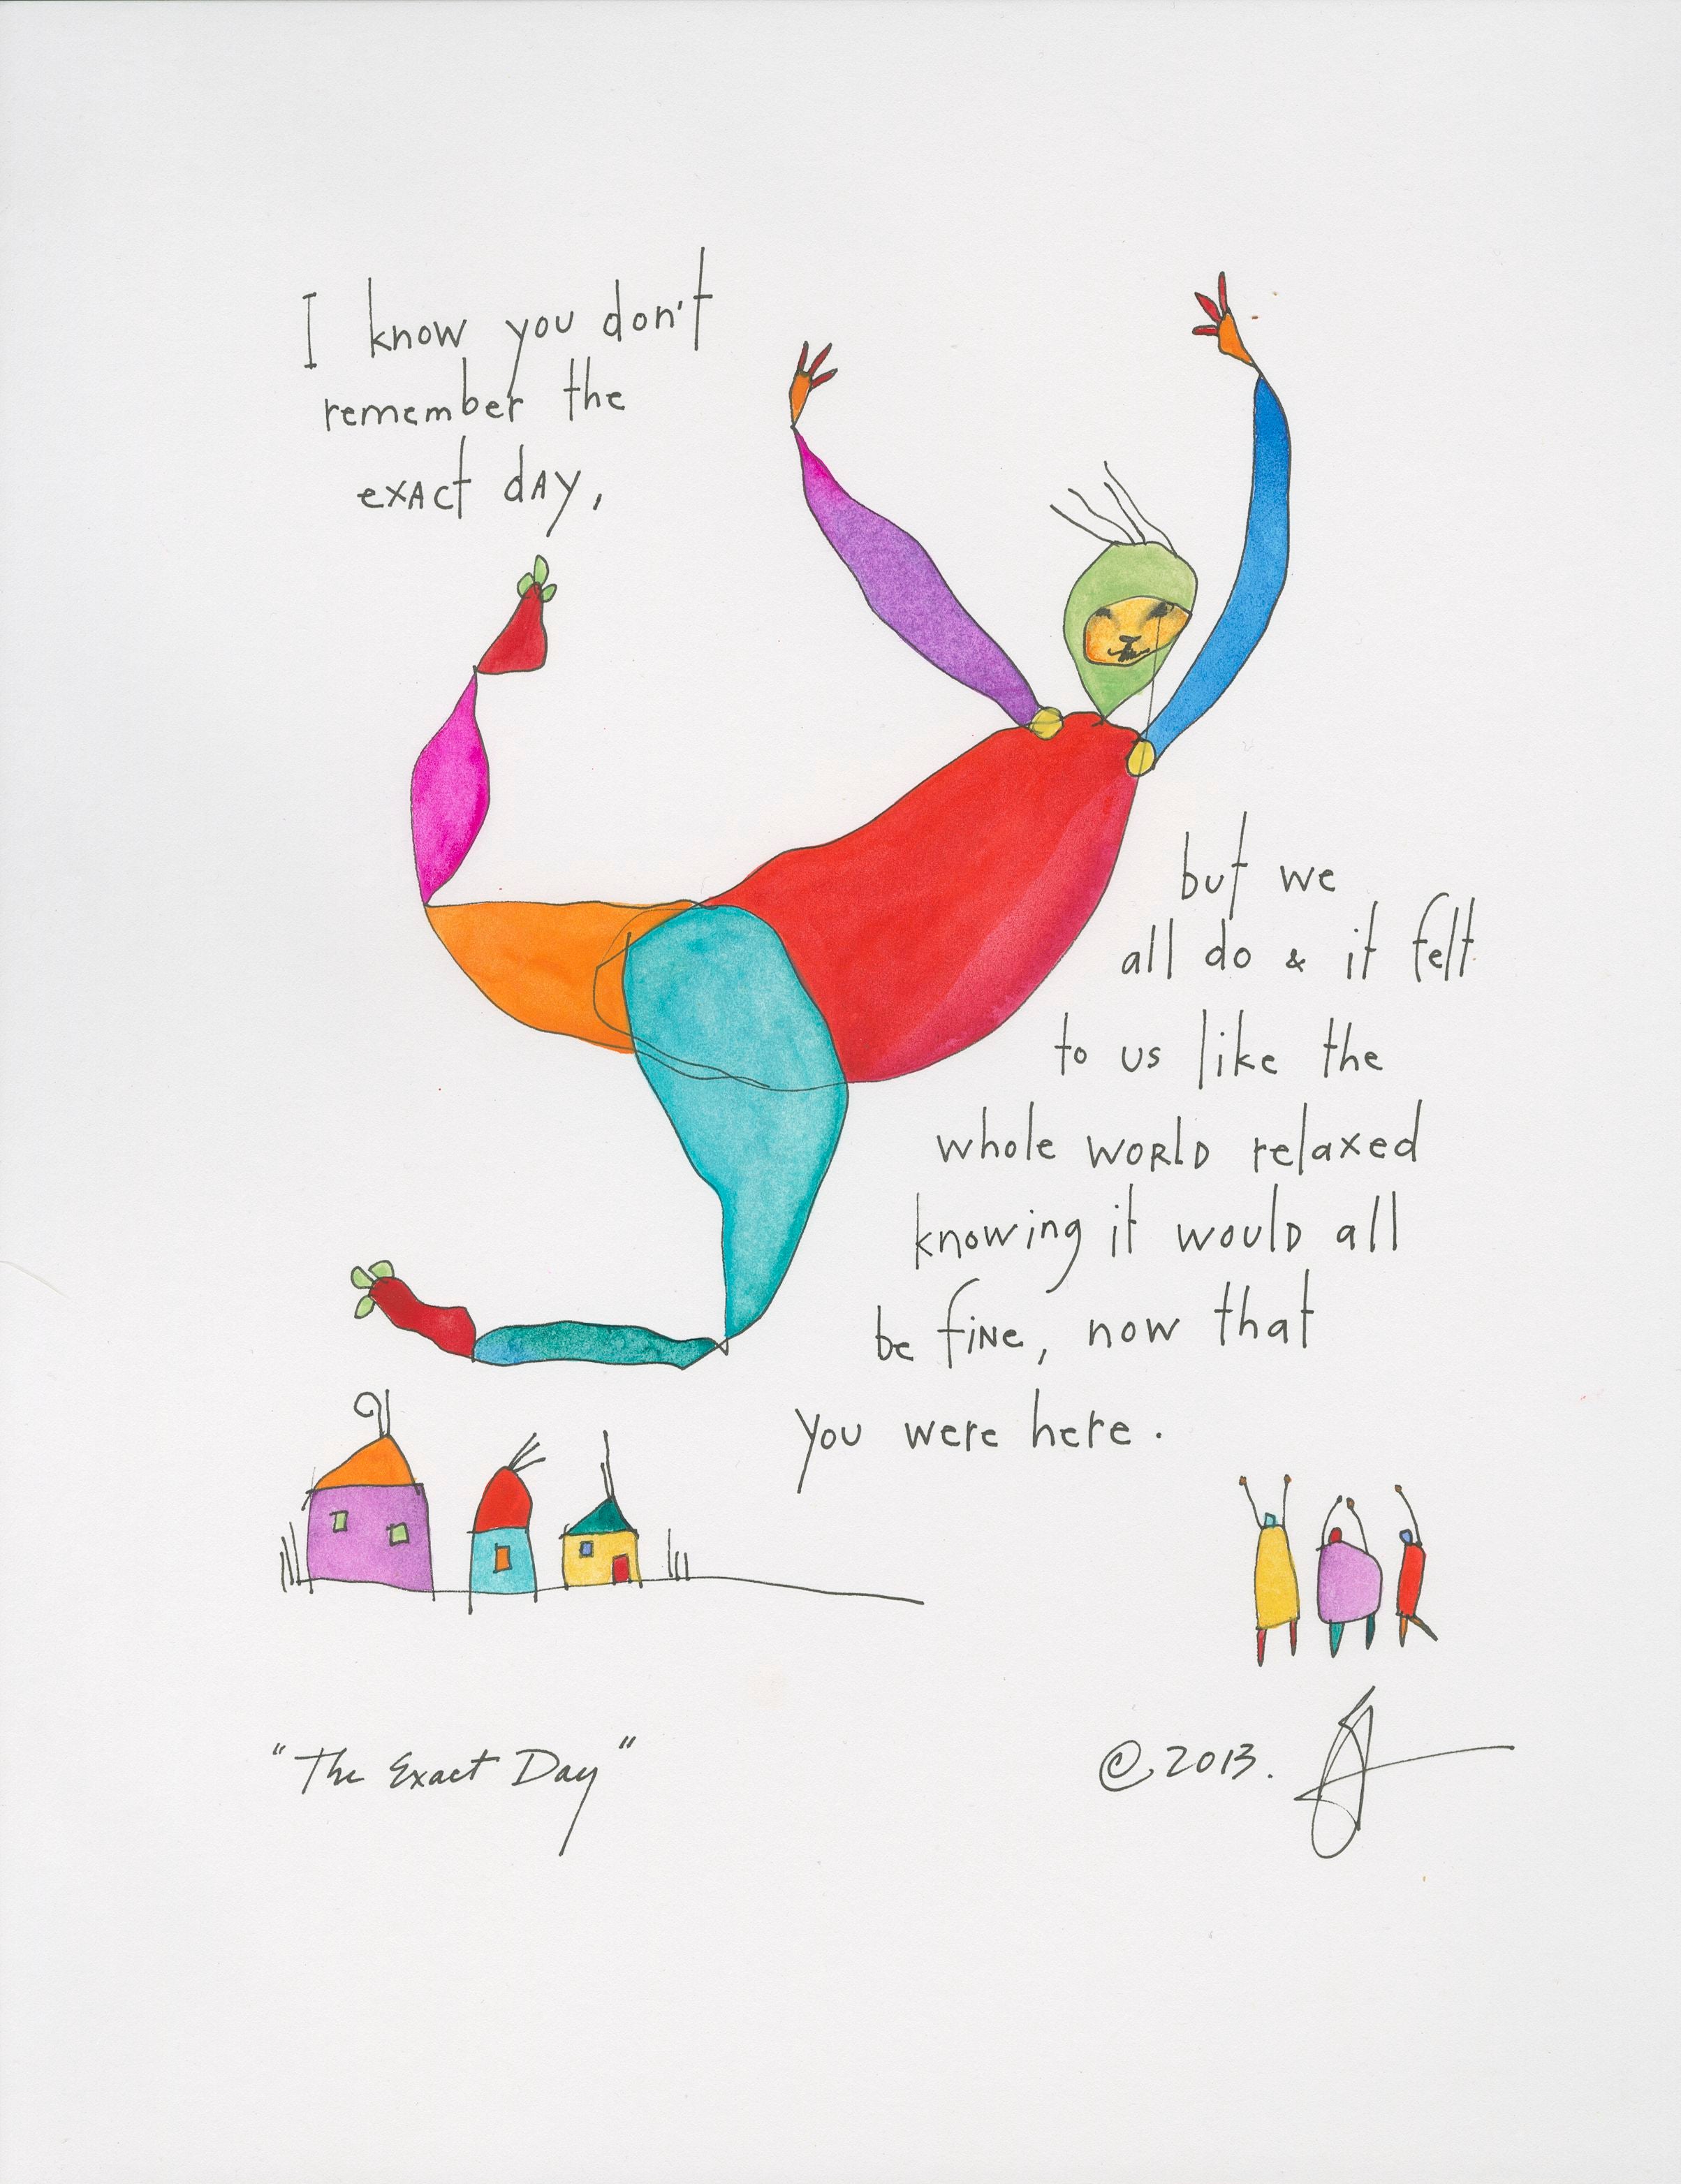 I know you don't
remember the
exact day,
but we
all do & it felt
to us like the
whole world relaxed
knowing it would all
be fine, now that
you were here.
"The Exact Day"
© 2013.